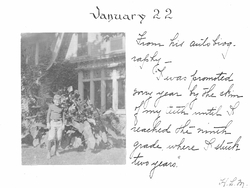 January 22
From his autobiog-
raphy —
"I was promoted
every year by the skin
of my teeth until I
reached the ninth
grade where I stuck
two years."